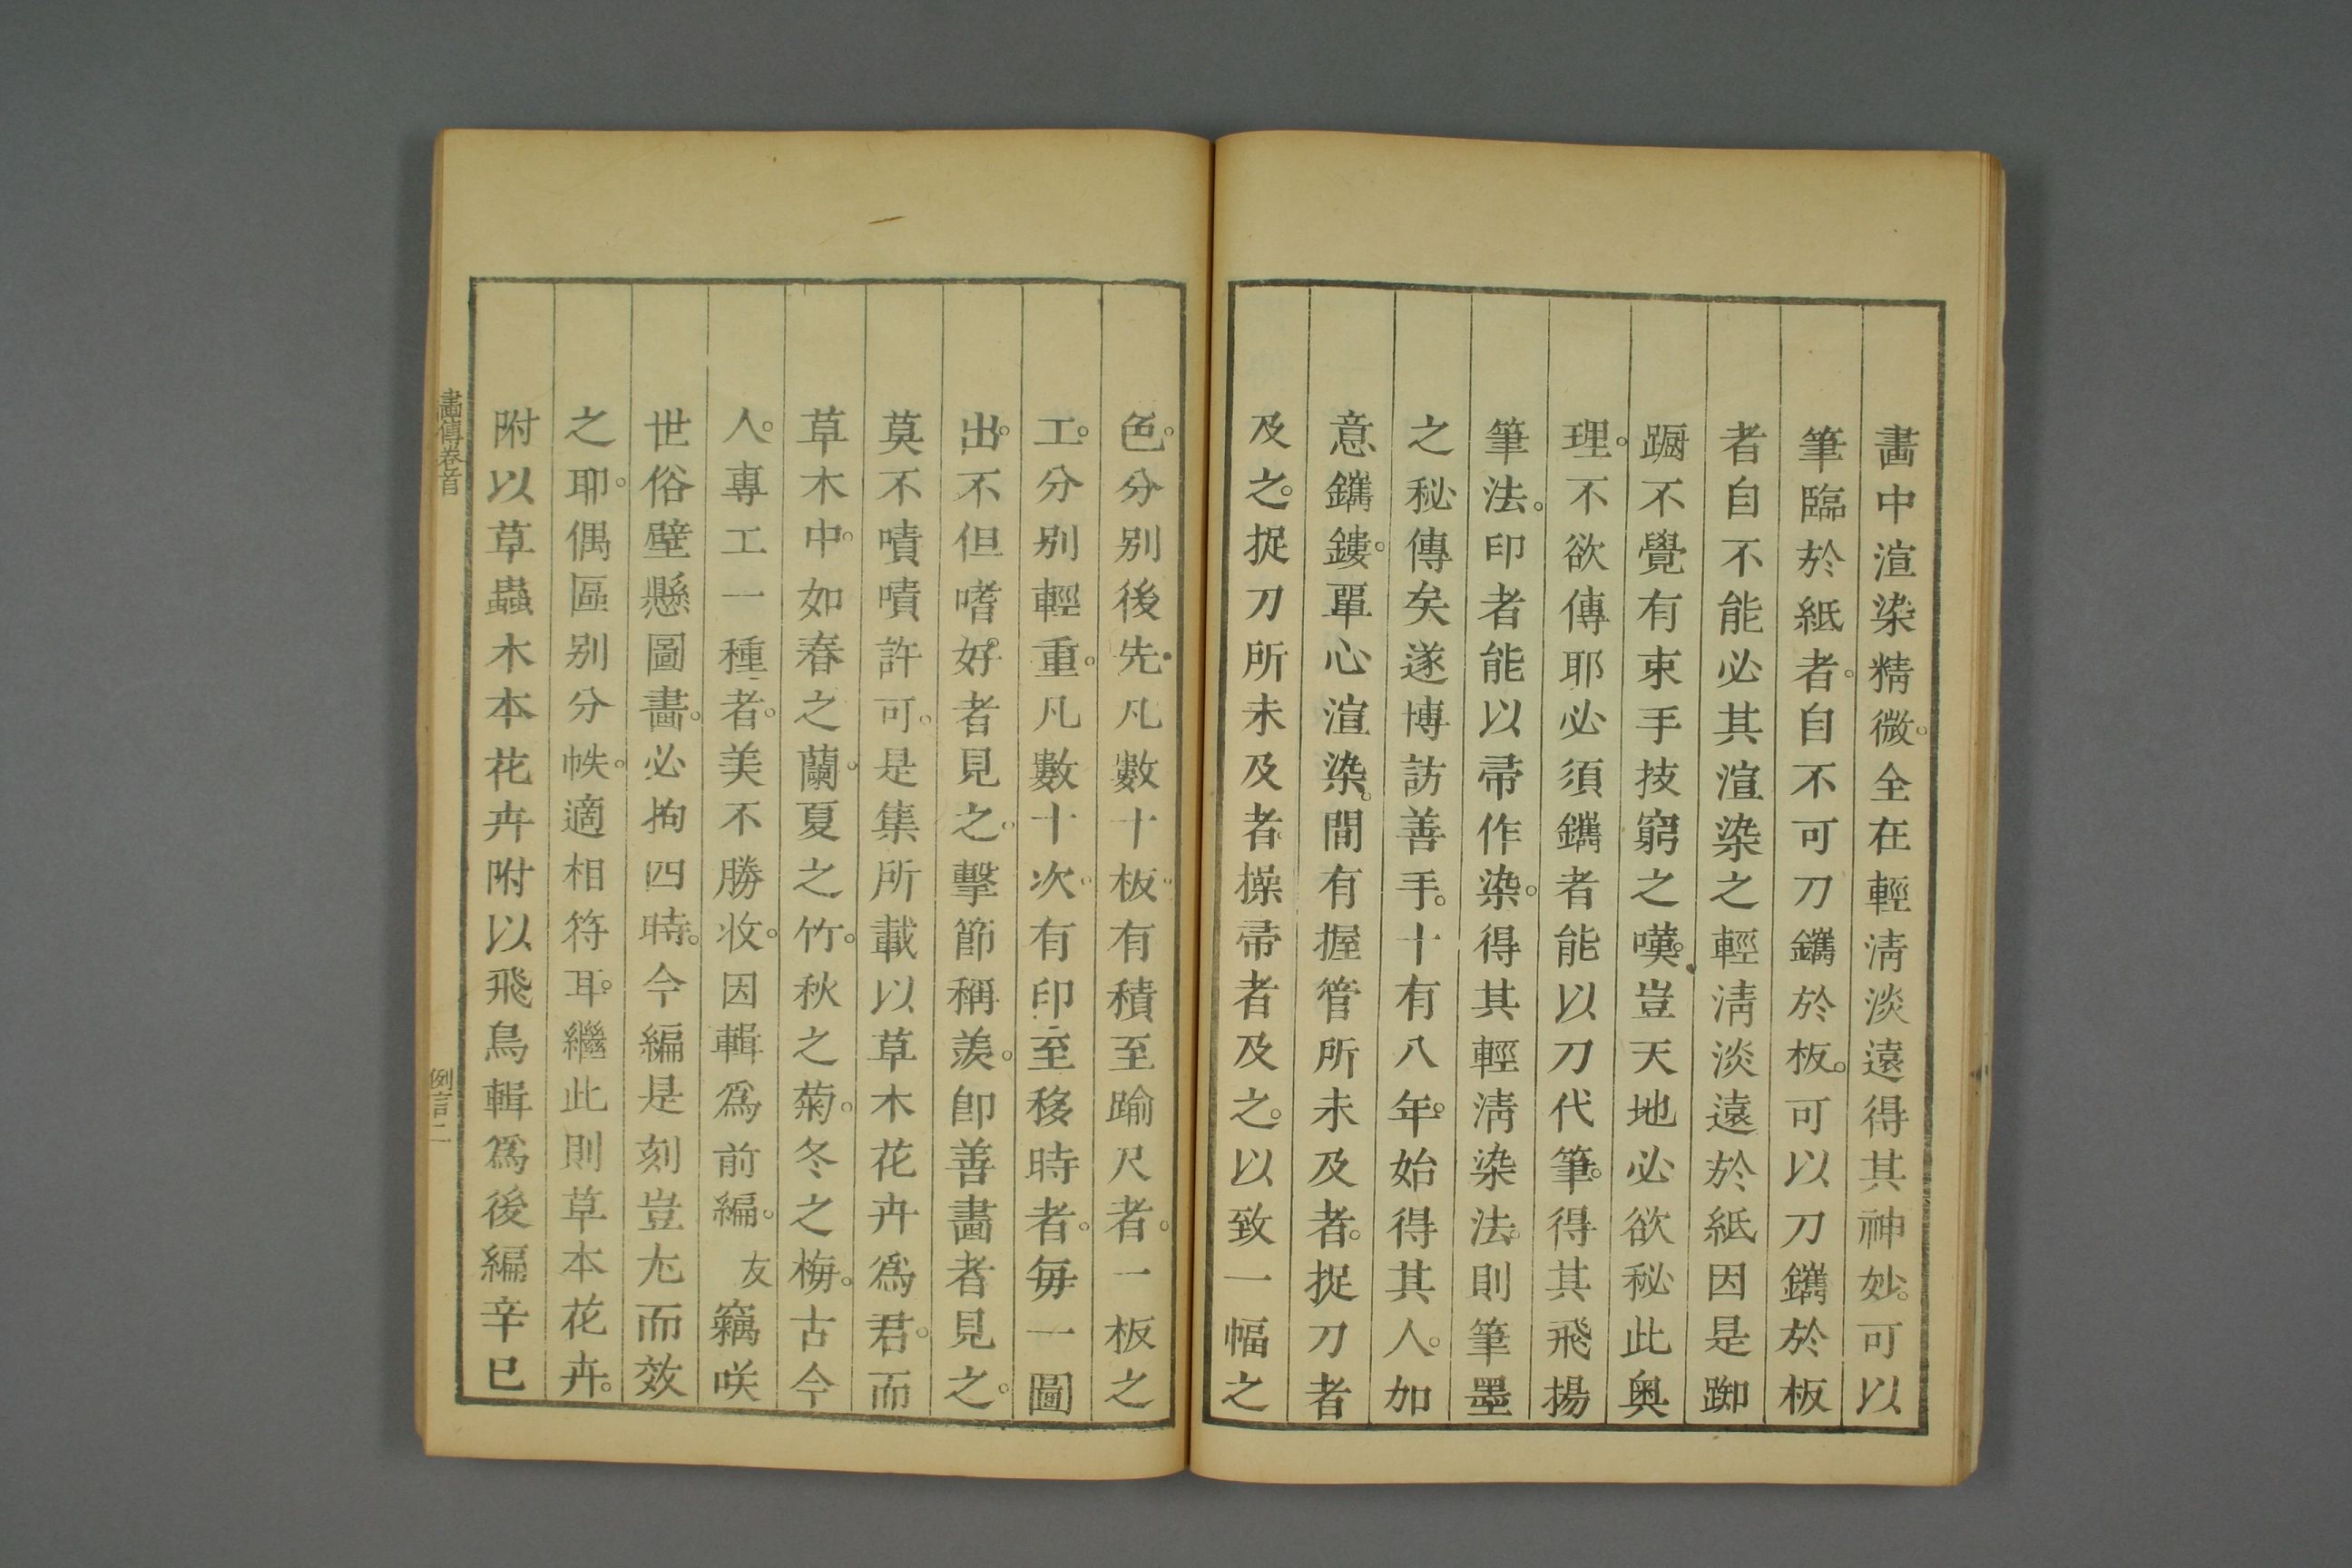 畫中渲染精微。全在輕淸淡遠得其神妙。可以
筆臨於紙者。自不可刀鐫於板。可以刀鐫於板
者自不能必其渲染之輕淸淡遠於紙因是踟
蹰不覺有束手技窮之嘆。豈天地必欲秘此奥
理。不欲傳耶必須鐫者能以刀代筆。得其飛揚
筆法。印者能以帚作染。得其輕淸染法。則筆墨
之秘傳矣遂博訪善手。十有八年。始得其人。加
意鐫鏤。單心渲染。間有握管所未及者。捉刀者
及之。捉刀所未及者。操帚者及之。以致一幅之
色。分别後先。凡數十板。有積至踰尺者。一板之
工。分别輕重。凡數十次。有印至移時者。每一圖
出。不但嗜好者見之。擊節稱羨。卽善畫者見之。
莫不嘖嘖許可。是集所載以草木花卉爲君。而
草木中。如春之蘭。夏之竹。秋之菊。冬之梅。古今
人。專工一種者。美不勝收。因輯爲前編。友竊咲
世俗壁懸圖畫。必拘四時。今編是刻豈尤而效
之耶。偶區别分帙。適相符耳。繼此則草本花卉。
附以草蟲木本花卉附以飛鳥輯爲後編辛巳
畫傳卷首
例言二